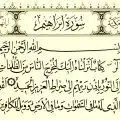 سُورَةُ إِبْرَاهِيمَ
بِسْمِ اللَّهِ الرَّحْمَٰنِ الرَّحِيمِ
الر كِتَابٌ أَنْزَلْنَاهُ إِلَيْكَ لِتُخْرِجَ النَّاسَ مِنَ الظُّلُمَاتِ
إِلَى النُّورِ بِإِذْنِ رَبِّهِمْ إِلَىٰ صِرَاطِ الْعَزِيزِ الْحَمِيدِ اللَّهِ
الَّذِي لَهُ مَا فِي السَّمَٰوَاتِ وَمَا فِي الْأَرْضِ وَوَيْلٌ لِلْكَافِرِينَ